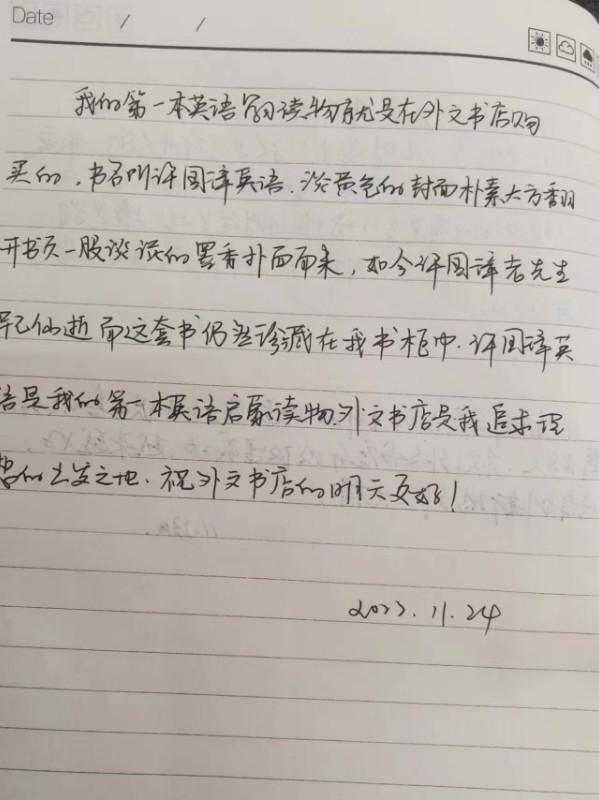 Date / /
我的第一本英语读物就是在外文书店购
买的，书名叫许国璋英语.淡黄色的封面朴素大方翻
开书页一股淡淡的墨香扑面而来，如今许国璋老先生
早已仙逝而这套书仍然珍藏在我书柜中.许国璋英
语是我的第一本英语启蒙读物.外文书店是我追求理
想的出发之地.祝外文书店的明天更好！
2023.11.24